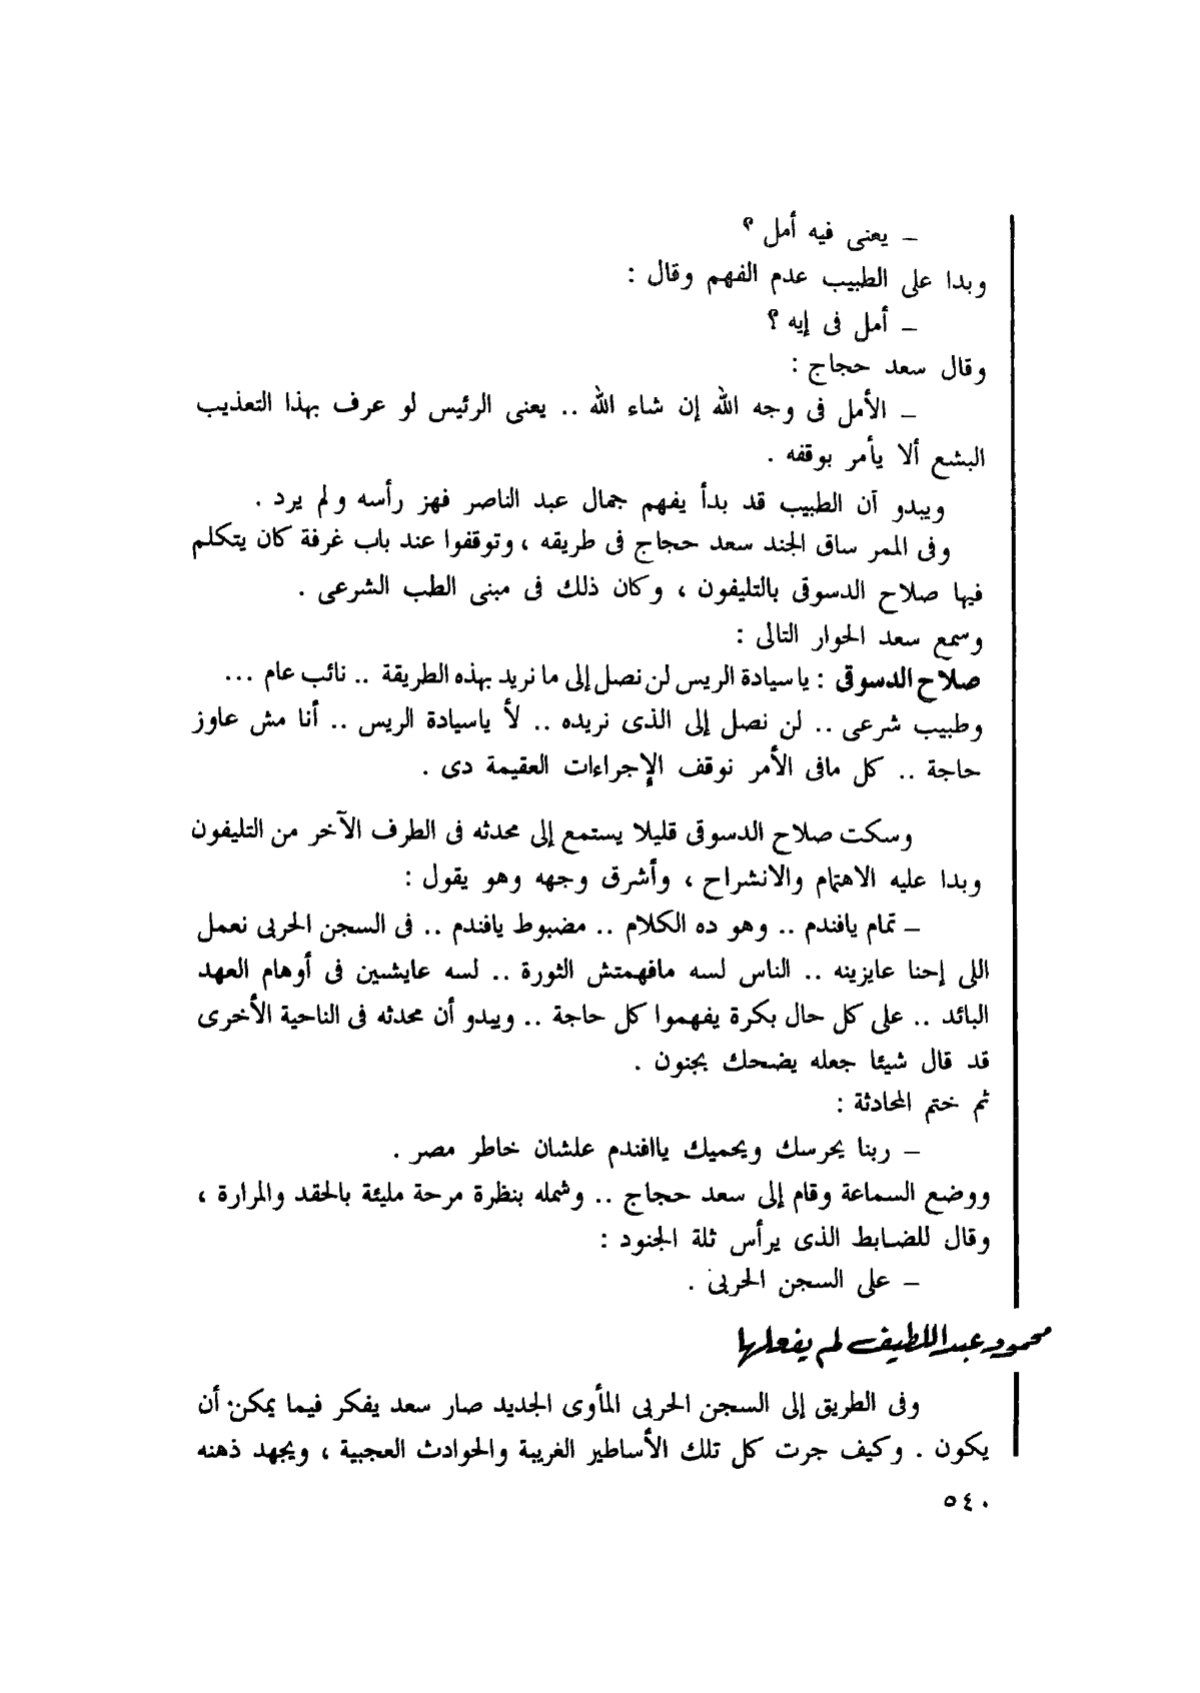 – يعنى فيه أمل ؟
وبدا على الطبيب عدم الفهم وقال :
– أمل فى إيه ؟
وقال سعد حجاج :
– الأمل فى وجه الله إن شاء الله .. يعنى الرئيس لو عرف بهذا التعذيب
البشع ألا يأمر بوقفه .
ويبدو أن الطبيب قد بدأ يفهم جمال عبد الناصر فهز رأسه ولم يرد .
وفى الممر ساق الجند سعد حجاج فى طريقه ، وتوقفوا عند باب غرفة كان يتكلم
فيها صلاح الدسوقى بالتليفون ، وكان ذلك فى مبنى الطب الشرعى .
وسمع سعد الحوار التالى :
صلاح الدسوقى : ياسيادة الريس لن نصل إلى ما نريد بهذه الطريقة .. نائب عام ...
وطبيب شرعى .. لن نصل إلى الذى نريده .. لأ ياسيادة الريس .. أنا مش عاوز
حاجة .. كل مافى الأمر نوقف الإجراءات العقيمة دى .
وسكت صلاح الدسوقى قليلا يستمع إلى محدثه فى الطرف الآخر من التليفون
وبدا عليه الاهتمام والانشراح ، وأشرق وجهه وهو يقول :
– تمام يافندم .. وهو ده الكلام .. مضبوط يافندم .. فى السجن الحربى نعمل
اللى إحنا عايزينه .. الناس لسه مافهمتش الثورة .. لسه عايشين فى أوهام العهد
البائد .. على كل حال بكرة يفهموا كل حاجة .. ويبدو أن محدثه فى الناحية الأخرى
قد قال شيئا جعله يضحك بجنون .
ثم ختم المحادثة :
– ربنا يحرسك ويحميك ياافندم علشان خاطر مصر .
ووضع السماعة وقام إلى سعد حجاج .. وشمله بنظرة مرحة مليئة بالحقد والمرارة ،
وقال للضابط الذى يرأس ثلة الجنود :
– على السجن الحربى .
محمود عبد اللطيف لم يفعلها
وفى الطريق إلى السجن الحربى المأوى الجديد صار سعد يفكر فيما يمكن أن
يكون . وكيف جرت كل تلك الأساطير الغريبة والحوادث العجبية ، ويجهد ذهنه
٥٤٠